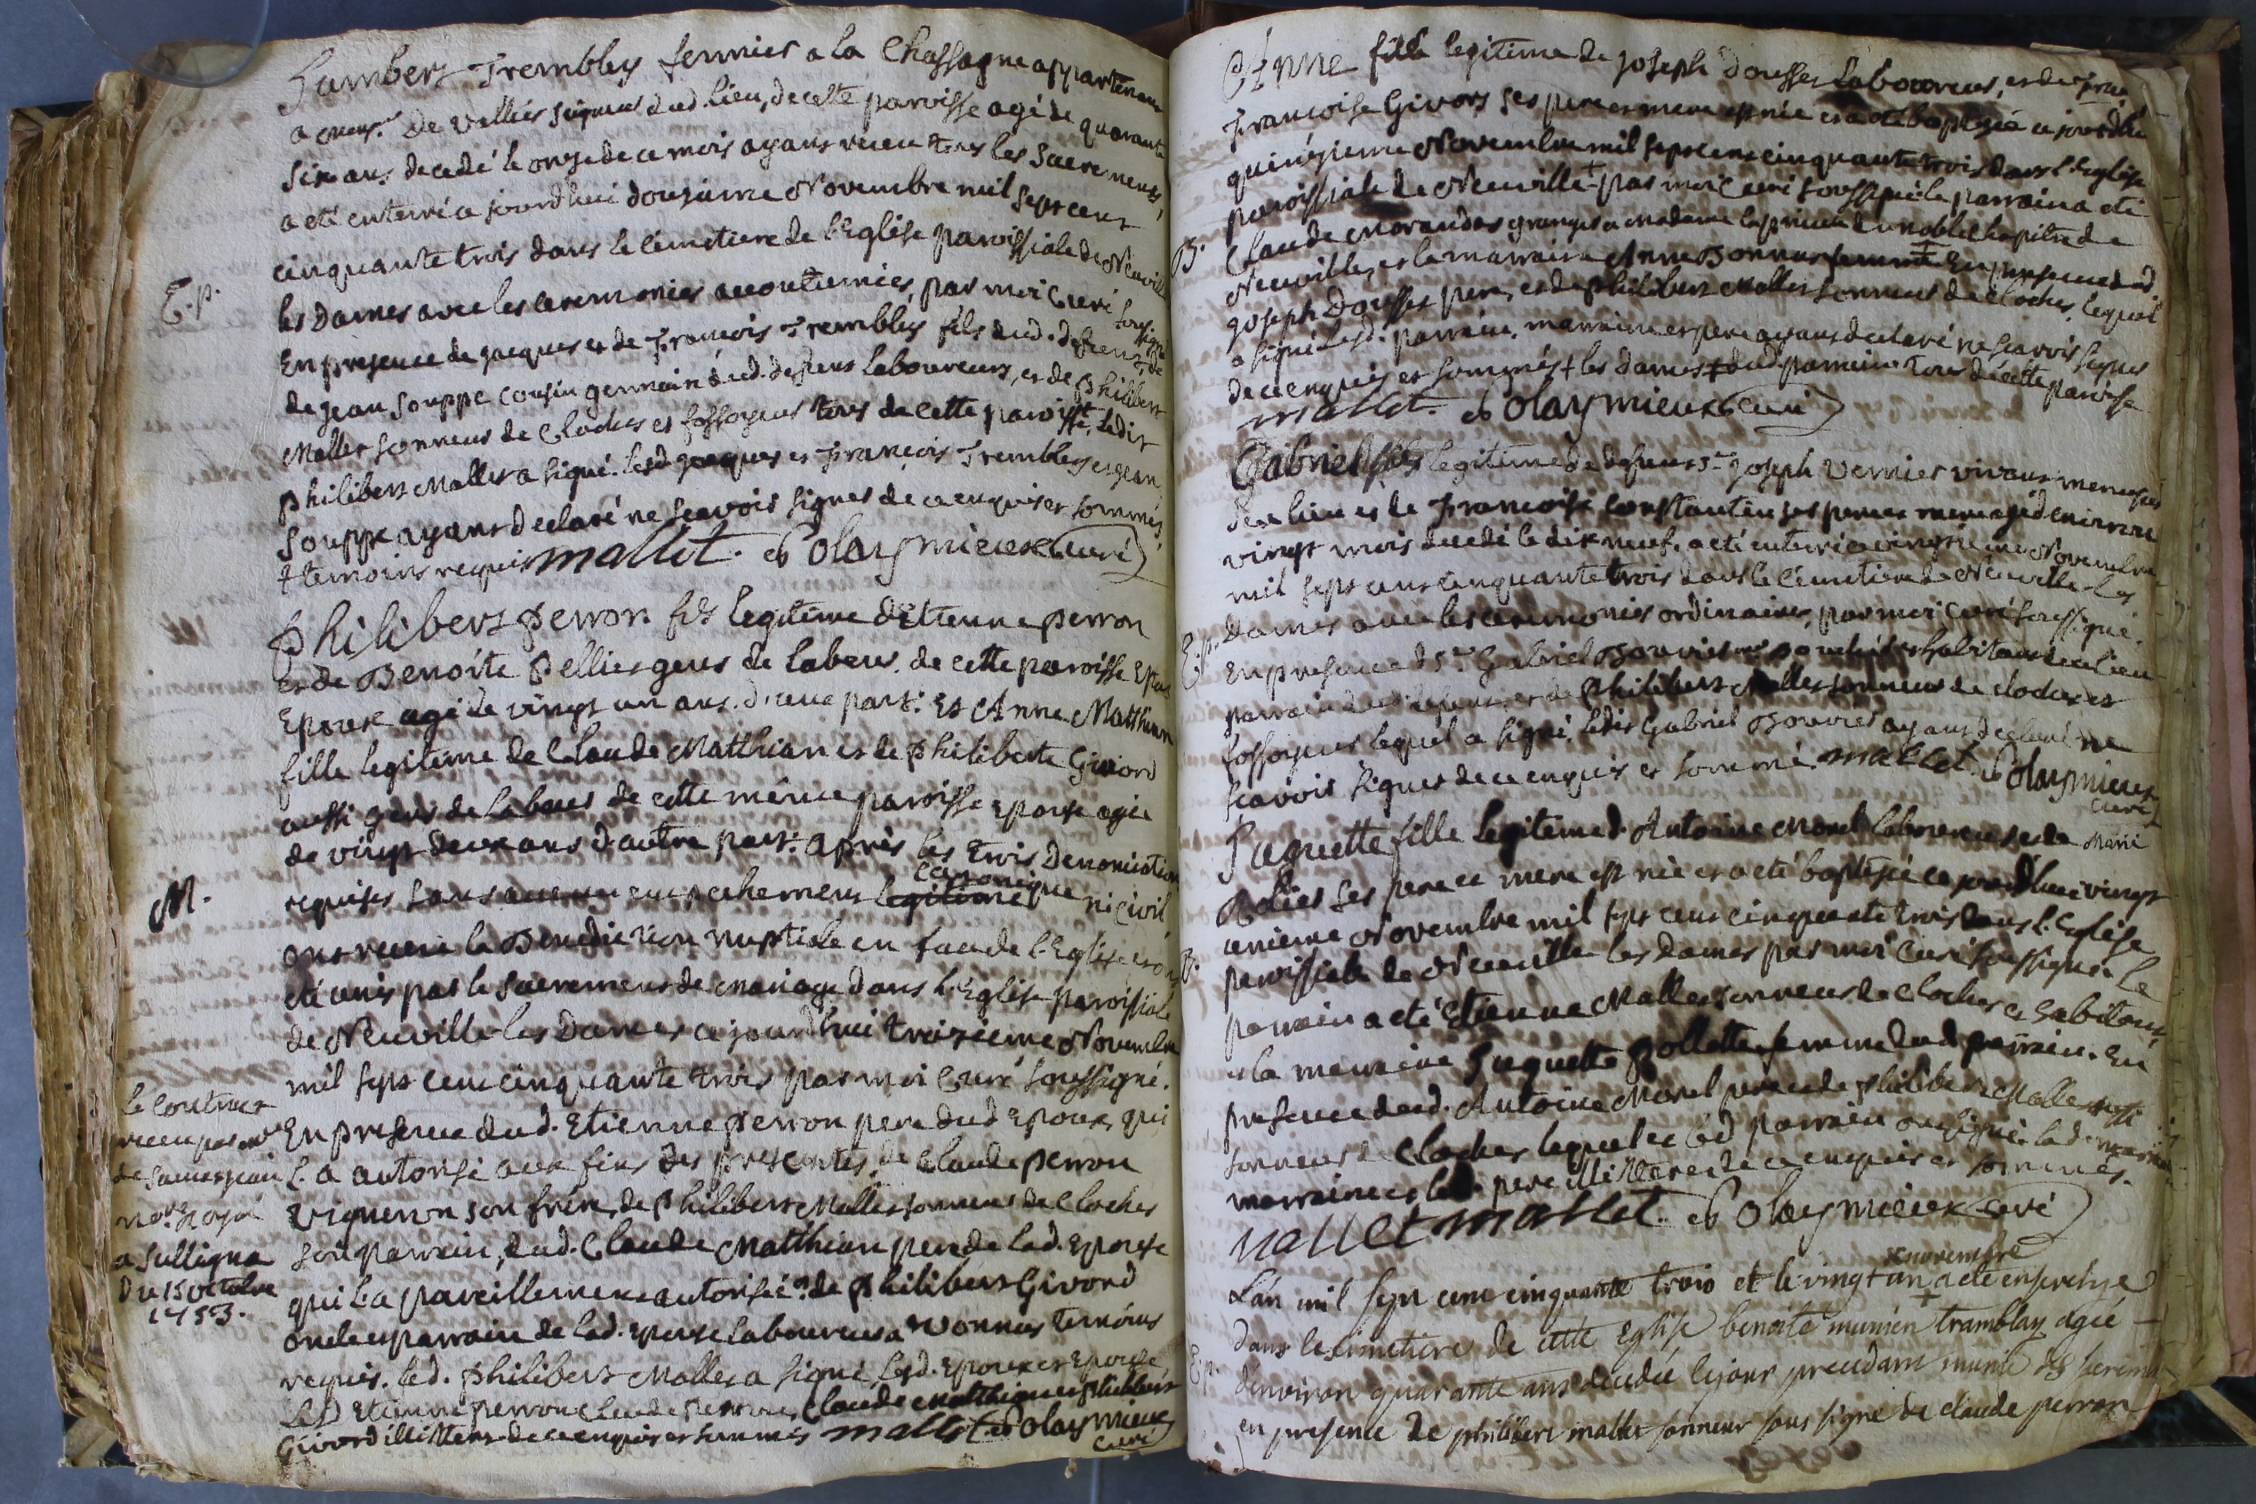 Lambert Trembley fermier a la Chassagne appartenant
a mons.r De Valliés seigneur dud. lieu, de cette paroisse agé de quarante
six ans, decedé le onze de ce mois ayant receu tous les Sacremens,
a eté enterré ce jourd'hui douzieme Novembre mil sept cent
cinquante trois dans le cimetiere de l'Eglise paroissiale de Neuville
E.p.
les Dames avec les ceremonies accoutumées, par moi Curé soussigné
En presence de jacques et de François Trembley fils dud. defunt, de
de jean Souppe cousin germain dud. defunt laboureurs, et de Philibert
Mallet sonneur de Cloches et fossoyeur tous de cette paroisse, + Ledit
Philibert Mallet a signé. lesd. jacques et François Trembley et jean
Souppe ayant declaré ne scavoir signer de ce enquis et sommés,
+ temoins requis mallet. Polaymieux Curé
Philibert Perron fils legitime d'Etienne Perron
et de Benoite Pellier gens de labeur de cette paroisse
Epoux agé de vingt un ans. d'une part: Et Anne Matthian
fille legitime de Claude Matthian et de Philiberte Givord
aussi gens de labeur de cette même paroisse Epouse agée
de vingt deux ans d'autre part: après les trois Denonciations
canonique
M.
requises sans aucun empechement legitime ni civil
ont receu la Benediction nuptiale en face de l'Eglise et ont
eté unis par le sacrement de mariage dans l'Eglise paroissiale
de Neuville les Dames ce jourd'hui treizieme Novembre
mil sept cent cinquante trois par moi Curé soussigné.
Le contract
receu par m.e
de Saint jean
no.re Royal
a Sulligna
Du 15 octobre
1753.
En presence dud. Etienne Perron pere dud. Epoux, qui
L'a autorisé aux fins des presentes, de Claude Perron
Vigneron son frere, de Philibert Mallet sonneur de Cloches
son parrain, dud. Claude Matthian pere de lad. Epouse
qui l'a pareillement autorisée, de Philibert Givord
oncle et parrain de lad. Epouse laboureur a Vonnas temoins
requis. led. Philibert Mallet a signé Lesd. Epoux et Epouse
Lesd. Etienne perron Claude perron, Claude Matthian et philibert
Givord illitterés de ce enquis et sommés mallet Polaymieux
curé
Anne fille legitime de joseph Dousset Laboureur, et de
Francoise Givors ses pere et mere est née et a eté baptisée ce jourd'hui
quinzieme Novembre mil sept cent cinquante trois dans l'Eglise
paroissiale de Neuville + par moi Curé soussigné le parrain a eté
B.
Claude Morand des granges a Madame la prieure du noble Chapitre de
Neuville, et la marraine Anne Bonnus femme + En presence dud.
joseph Dousset pere, et de Philibert Mallet sonneur de Cloches, lequel
a signé lesd. parrain, marraine et pere ayant declaré ne scavoir signer
de ce enquis et sommés + les Dames + dud. parrain tous de cette paroisse
mallet. Polaymieux Curé
Gabriel fils legitime de defunt s.r joseph Vernier vivant menuisier
de ce lieu et de Francoise Constantin ses pere et mere agé d'environ
vingt mois decedé le dix neuf. a eté enterré ce vingtieme Novembre
mil sept cent cinquante trois dans le Cimetiere de Neuville les
E.p.
Dames avec les ceremonies ordinaires, par moi Curé soussigné.
En presence de s.r Gabriel Bouvier habitant de ce lieu
parrain dud. defunt, et de Philibert Mallet sonneur de cloches et
fossoyeur lequel a signé, ledit Gabriel Bouvier ayant declaré ne
scavoir signer de ce enquis et sommé. mallet Polaymieux
curé
Huguette fille legitime d'Antoine Morel laboureur et de Marie
ses pere et mere est née et a eté baptisée ce jourd'hui vingt
unieme Novembre mil sept cent cinquante trois dans l'Eglise
B.
paroissiale de Neuville les Dames par moi Curé soussigné. Le
parrain a eté Etienne Mallet sonneur de Cloches et habitant
et la marraine Huguette Pollette femme dud. parrain. En
presence dud. Antoine Morel pere et de Philibert Mallet
sonneur de Cloches lequel et led. parrain ont signé. lad.
marraine et led. pere illitterés de ce enquis et sommés.
mallet mallet. Polaymieux curé
x novembre
L'an mil sept cent cinquante trois et le vingt un x a eté ensevelye
dans le cimetiere de cette Eglise benoite munier tramblay agée
E.p.
d'environ quarante ans decedée le jour precedant munie des sacremens
en presence de philibert mallet sonneur sous signé de claude perron